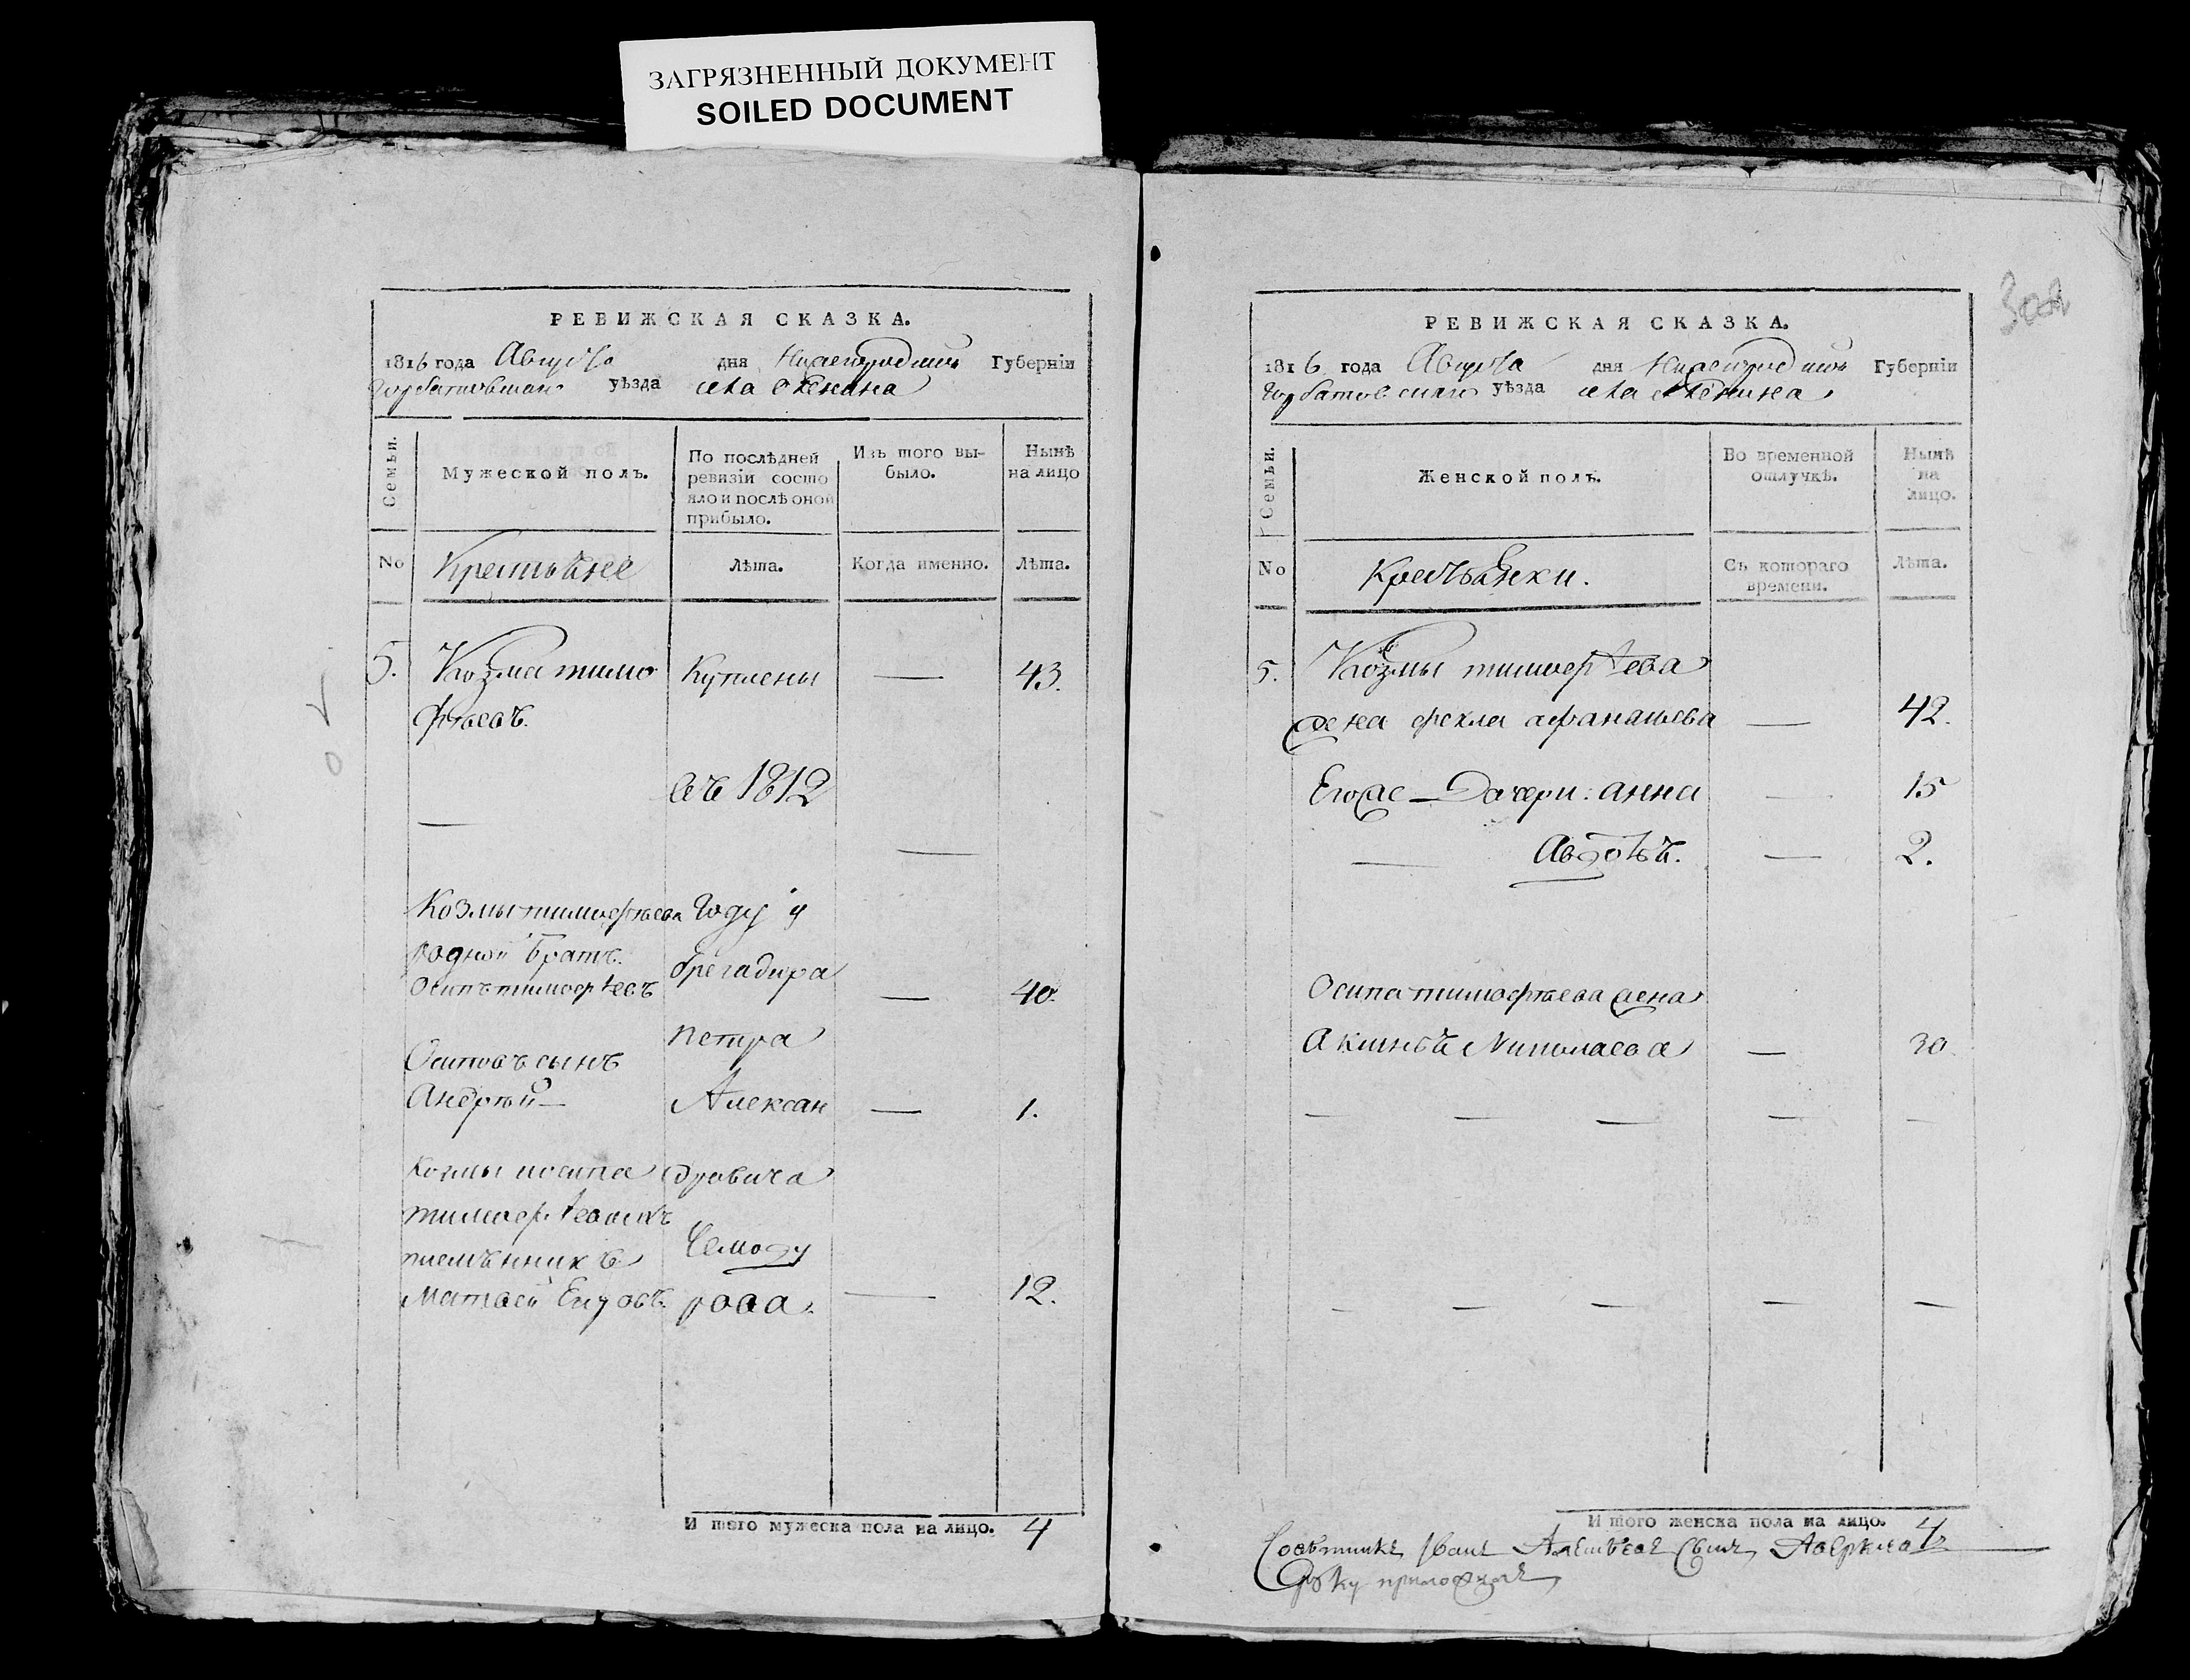 ЗАГРЯЗНЕННЫЙ ДОКУМЕНТ
SOILED DOCUMENT
РЕВИЖСКАЯ СКАЗКА.
1816 года Августа дня Нижегородской Губерніи
Горбатовскаго уѣзда села
Семьи.
Мужеской полъ.
По послѣдней
ревизіи состо
яло и послѣ оной
прибыло.
Изъ того вы-
было.
Нынѣ
на лицо
No
Крестьяне
Лѣта.
Когда именно.
Лѣта.
5. Козма тимо Куплены — 43.
фѣевъ.
въ 1812
—
—
Козмы тимофѣева году у
родной братъ
брегадира
Осипъ тимофѣевъ — 40.
петра
Осиповъ сынъ
Андрѣй — Алексан — 1.
Козмы иосипа дровича
тимофѣевыхъ
племѣнникъ Чемоду
Матвей рова. — 12.
И того мужеска пола на лицо. 4
302
РЕВИЖСКАЯ СКАЗКА.
1816 года Августа дня Нижегородской Губерніи
Горбатовскаго уѣзда села
Семьи.
Женской полъ.
Во временной
отлучкѣ.
Нынѣ
на
лицо.
No
Крестьянки.
Съ котораго
времени.
Лѣта.
5. Козмы тимофѣева
жена фекла афанасьева — 42.
Егоже — Дочери: анна — 15
— Авдотья. — 2.
Осипа тимофѣева жена
Акминья Николаева — 30.
— — — — —
— — — — —
И того женска пола на лицо. 4
Иванъ Алексѣевъ сынъ
руку приложилъ